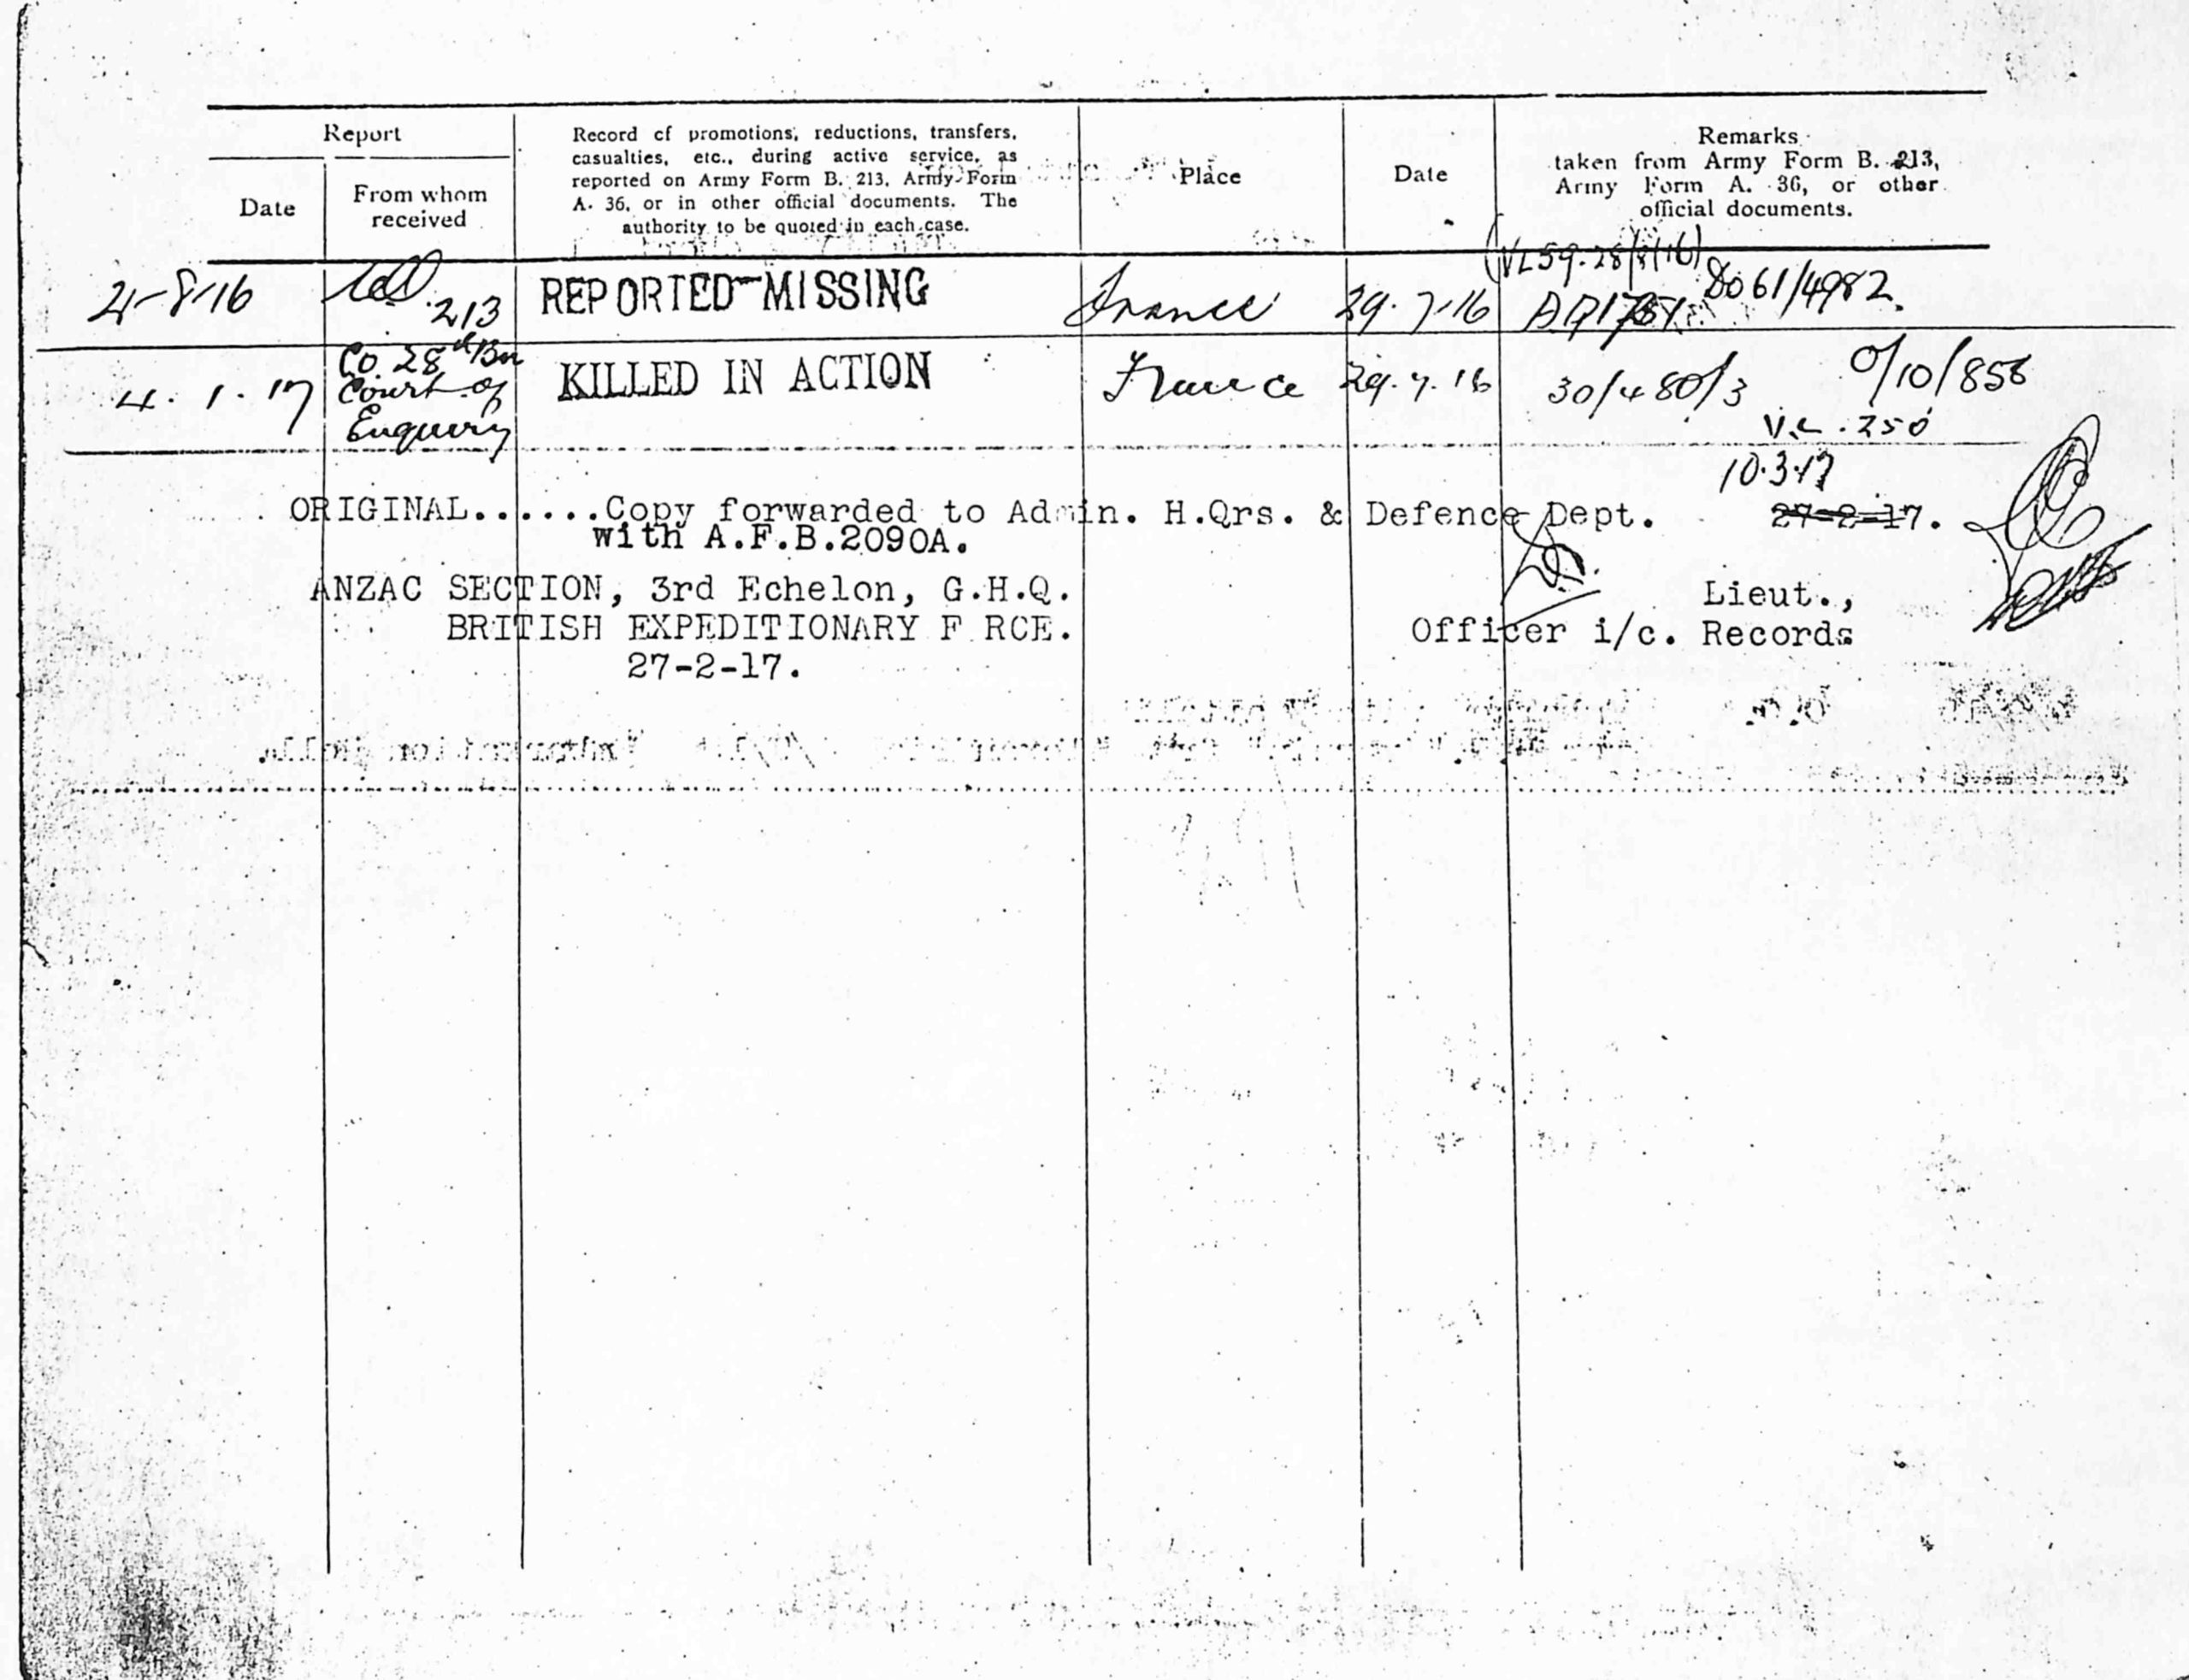 Report
Date
From whom
received
Record of promotions, reductions, transfers,
casualties, etc., during active service, as
reported on Army Form B. 213, Army Form
A. 36, or in other official documents. The
authority to be quoted in each case.
Place
Date
Remarks
taken from Army Form B. 213,
Army Form A. 36, or other
official documents.
(VL59. 28/8/16)
21-8-16 213 REPORTED MISSING France 29.7.16 8061/4982.
4.1.17 Co. 28th Bn Court of Enquiry KILLED IN ACTION France 29.7.16 30/480/3 0/10/856
V.L. 250
10.3.17
ORIGINAL......Copy forwarded to Admin. H.Qrs. & Defence Dept. 27-2-17.
with A.F.B.2090A.
ANZAC SECTION, 3rd Echelon, G.H.Q.
BRITISH EXPEDITIONARY F RCE.
27-2-17.
Lieut.,
Officer i/c. Records